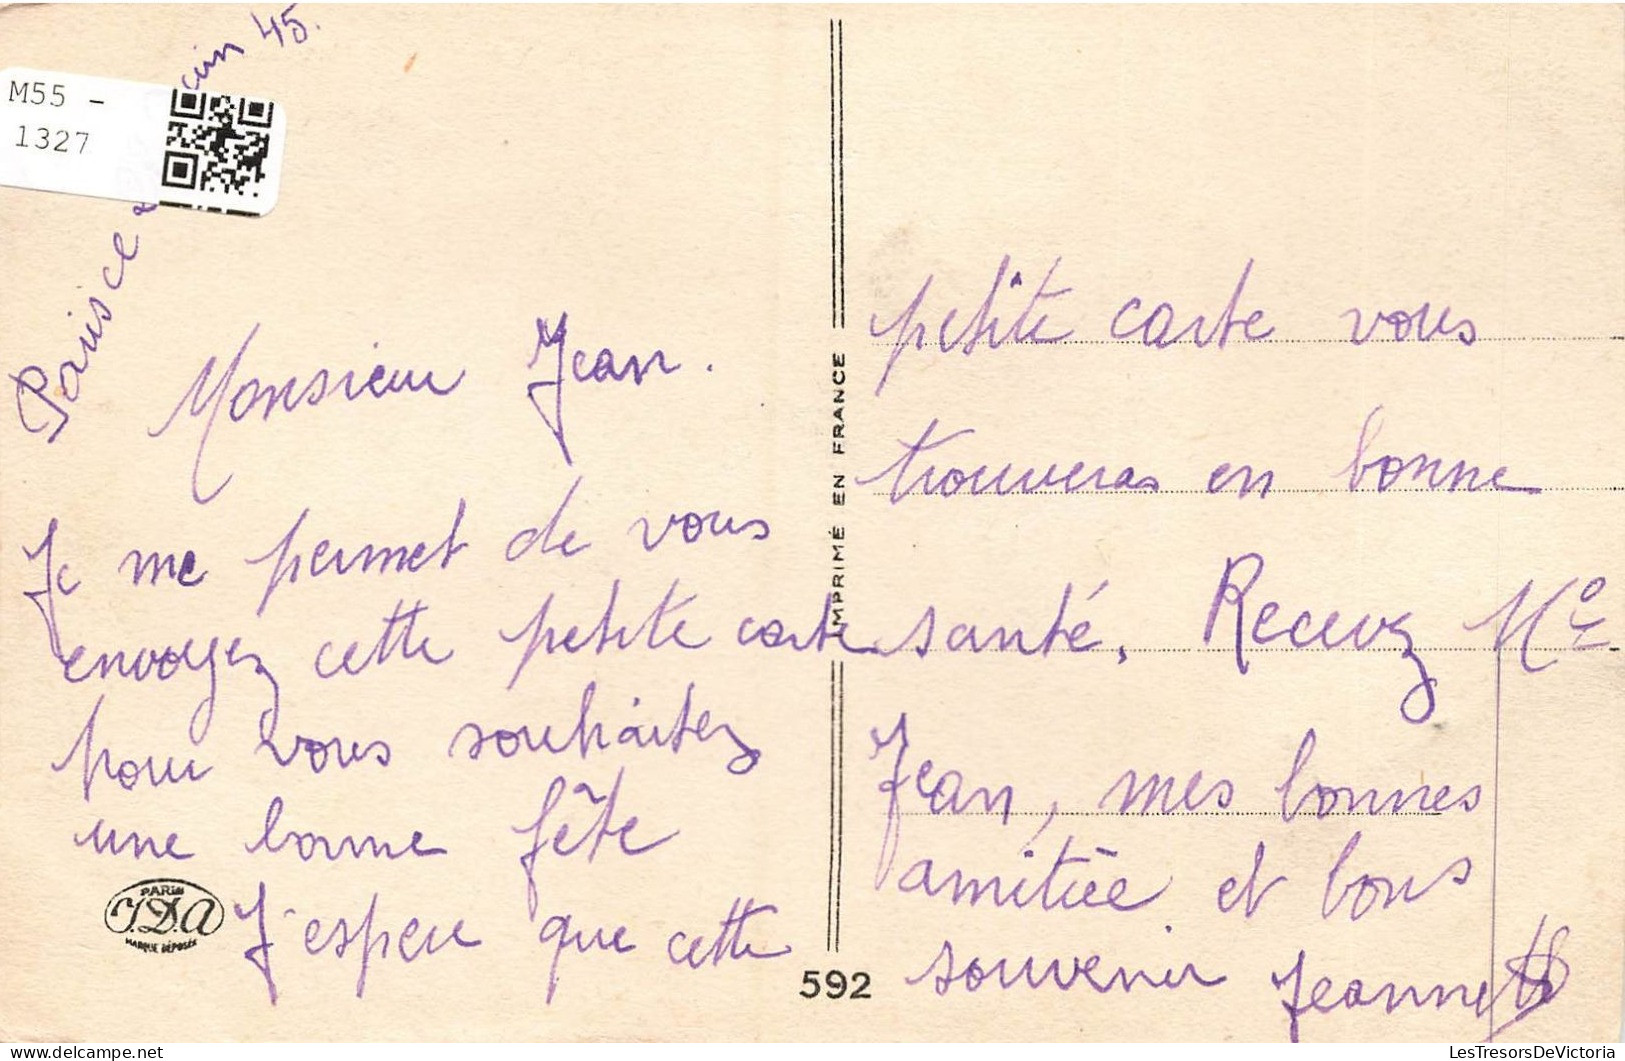 M55 -
1327
Paris ce 2 uin 45.
Monsieur Jean.
Je me permet de vous
envoyez cette petite carte
pour vous souhaitez
une bonne fête
J'espere que cette
PARIS
J.D.A
MARQUE DÉPOSÉE
IMPRIMÉ EN FRANCE
592
petite carte vous
trouveras en bonne
santé. Recevez Mr
Jean, mes bonnes
amitiée et bons
souvenir Jeannette
LesTresorsDeVictoria
delcampe.net